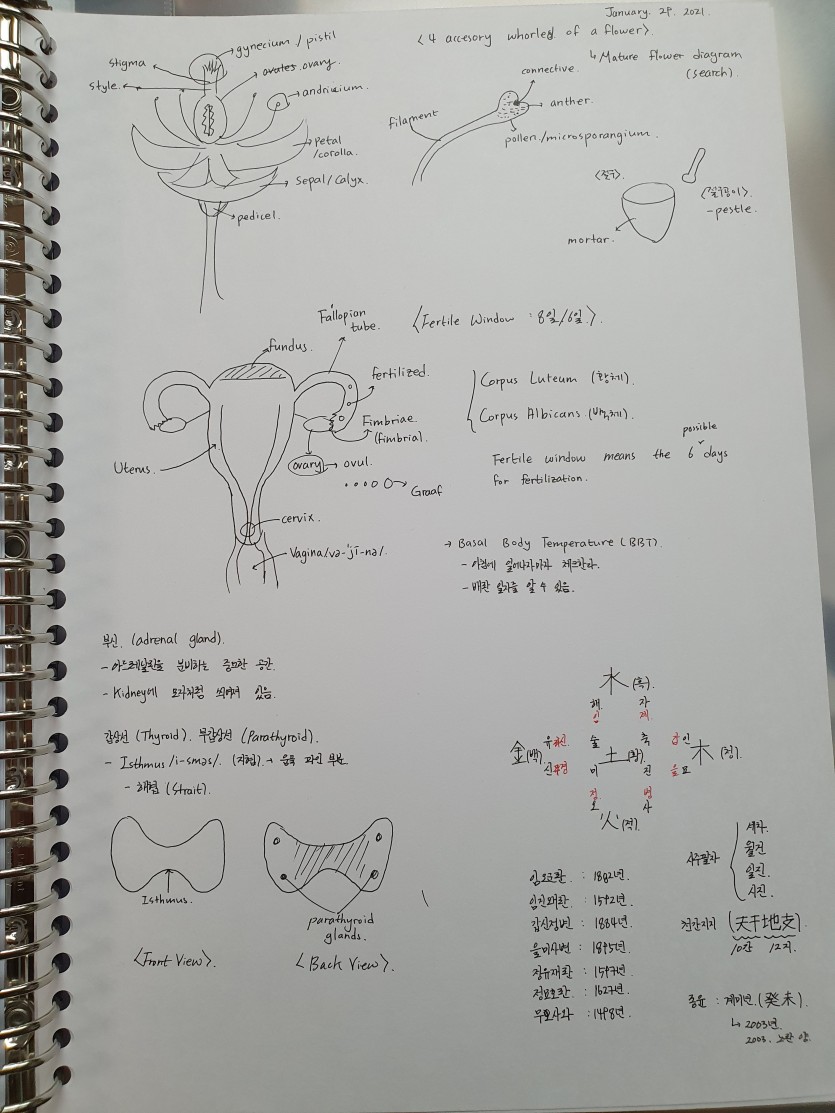 January. 29. 2021.
< 4 accesory whorled of a flower>.
↳ Mature flower diagram
(search).
gynecium / pistil
stigma
ovates. ovary.
style.
andricium.
Petal
/corolla.
Sepal/Calyx.
pedicel.
connective.
anther.
filament
pollen./microsporangium.
<절구>.
<절구공이>.
-pestle.
mortar.
Fallopian
tube.
<Fertile Window : 8일/6일>.
fundus.
fertilized.
Fimbriae
(fimbria).
Uterus.
ovary → ovul.
Graaf
cervix.
Vagina/və-ˈjī-nə/.
Corpus Luteum (황체).
Corpus Albicans. (백체).
possible
Fertile window means the 6 days
for fertilization.
→ Basal Body Temperature (BBT).
- 아침에 일어나자마자 체크한다.
- 배란 일자를 알 수 있음.
부신. (adrenal gland).
- 아드레날린을 분비하는 중요한 공간.
- Kidney에 모자처럼 씌여져 있음.
갑상선 (Thyroid). 부갑상선 (Parathyroid).
- Isthmus /i-sməs/. (지협). → 움푹 파인 부분
- 해협 (Strait).
Isthmus.
parathyroid
glands.
<Front View>.
< Back View>.
水 (흑).
해 자
임 계
金 (백) 유 신 술 축 갑 인 木 (청).
신 경 土 (황) 을 묘
미 진
정 병
오 사
火 (적).
임오군란 : 1882년.
임진왜란 : 1592년.
갑신정변 : 1884년.
을미사변 : 1895년.
정유재란 : 1597년.
정묘호란 : 1627년.
무오사화 : 1498년.
사주팔자
세차.
월건
일진
시진.
천간지지 (天干地支).
10간 12지.
종윤 : 계미년. (癸未).
↳ 2003년.
2003. 노란 양.